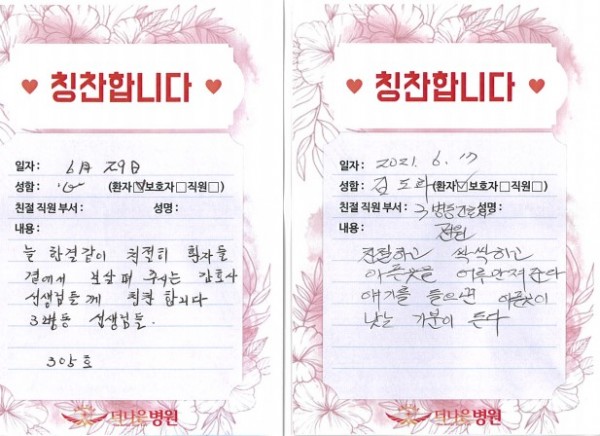 칭찬합니다
일자 : 6月 29日
성함 : (환자☑보호자☐직원☐)
친절 직원 부서 : 성명 :
내용 :
늘 한결같이 친절히 환자들
곁에서 보살펴 주시는 간호사
선생님들께 칭찬 합니다
3병동 선생님들.
305호
더나은병원
칭찬합니다
일자 : 2021. 6. 17
성함 : 김도화 (환자☑보호자☐직원☐)
친절 직원 부서 : 3병동간호사 성명 :
전원
내용 :
친절하고 싹싹하고
아픈곳을 어루만져준다
얘기를 들으면 아픈곳이
낫는 기분이 든다
더나은병원